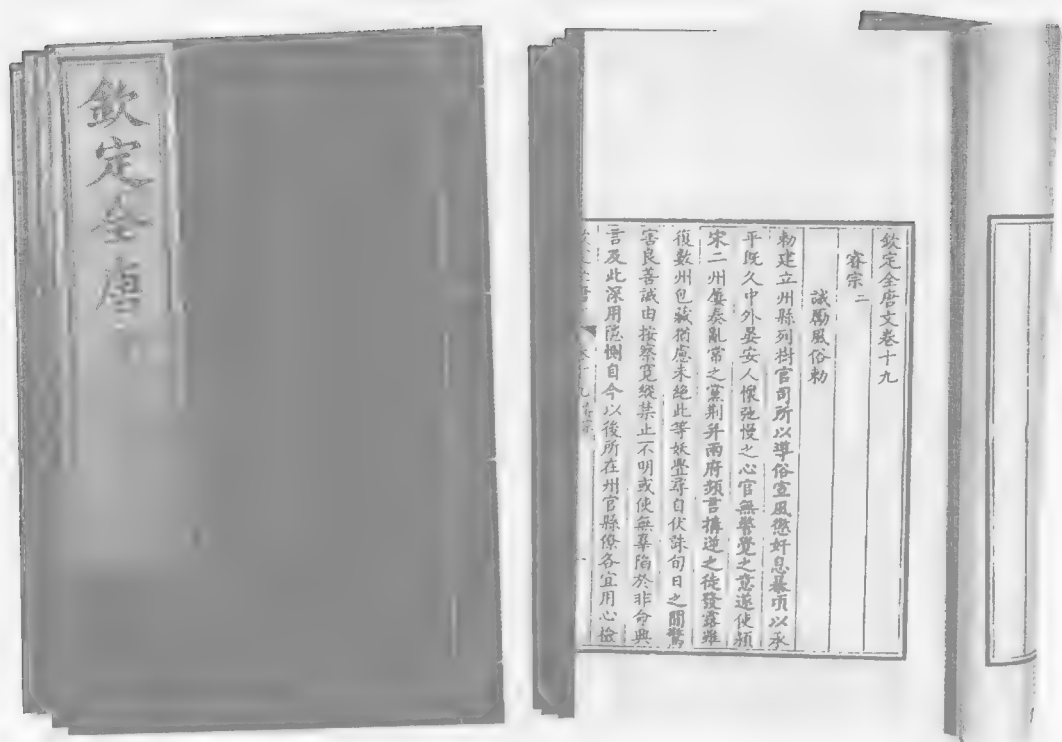 欽定全唐
欽定全唐文卷十九
睿宗二
誡勵風俗勅
勅建立州縣列樹官司所以導俗宣風懲奸息暴頃以承
平既久中外晏安人懷弛慢之心官無警覺之意遂使潁
宋二州屢奏亂常之黨荆并兩府頻言搆逆之徒發露雖
復數州包藏猶慮未絕此等妖釁尋自伏誅旬日之間驚
害良善誠由按察寬縱禁止不明或使無辜陷於非命興
言及此深用隱惻自今以後所在州官縣僚各宜用心檢